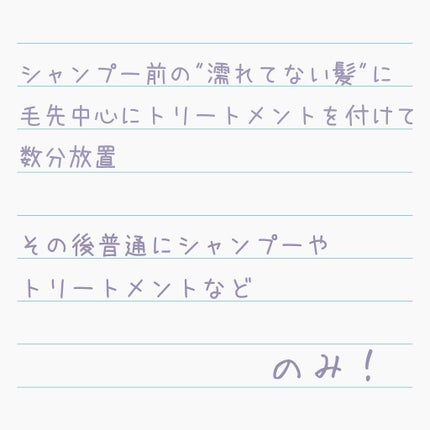 シャンプー前の"濡れてない髪"に
毛先中心にトリートメントを付けて
数分放置
その後普通にシャンプーや
トリートメントなど
のみ!